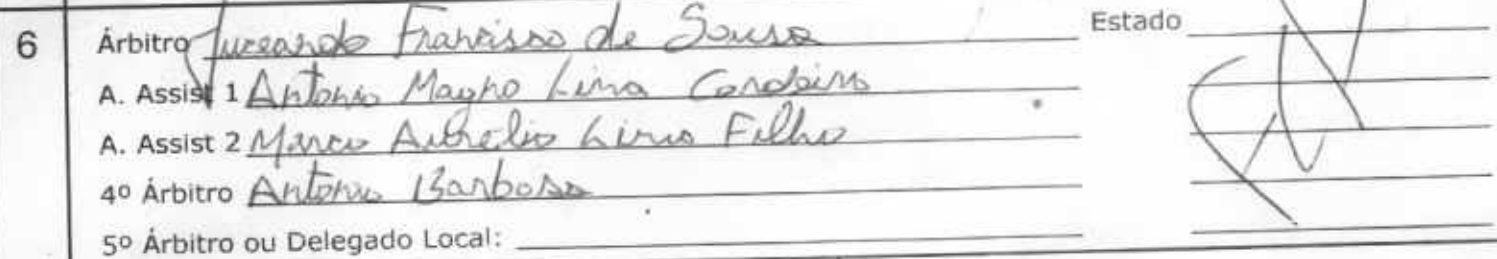 6 Árbitro Francisco de Sousa Estado
A. Assist 1 Antonio Magno Lima Cordeiro
A. Assist 2 Marcio Aurelio Lima Filho
4º Árbitro Antonio Barbosa
5º Árbitro ou Delegado Local: